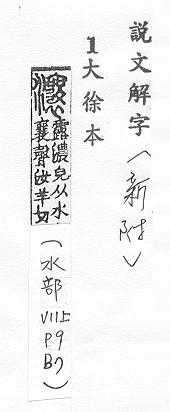 説文解字(新附)
1大徐本
瀼 露濃皃从水
襄聲汝羊切
(水部
VII上
P9
B7)